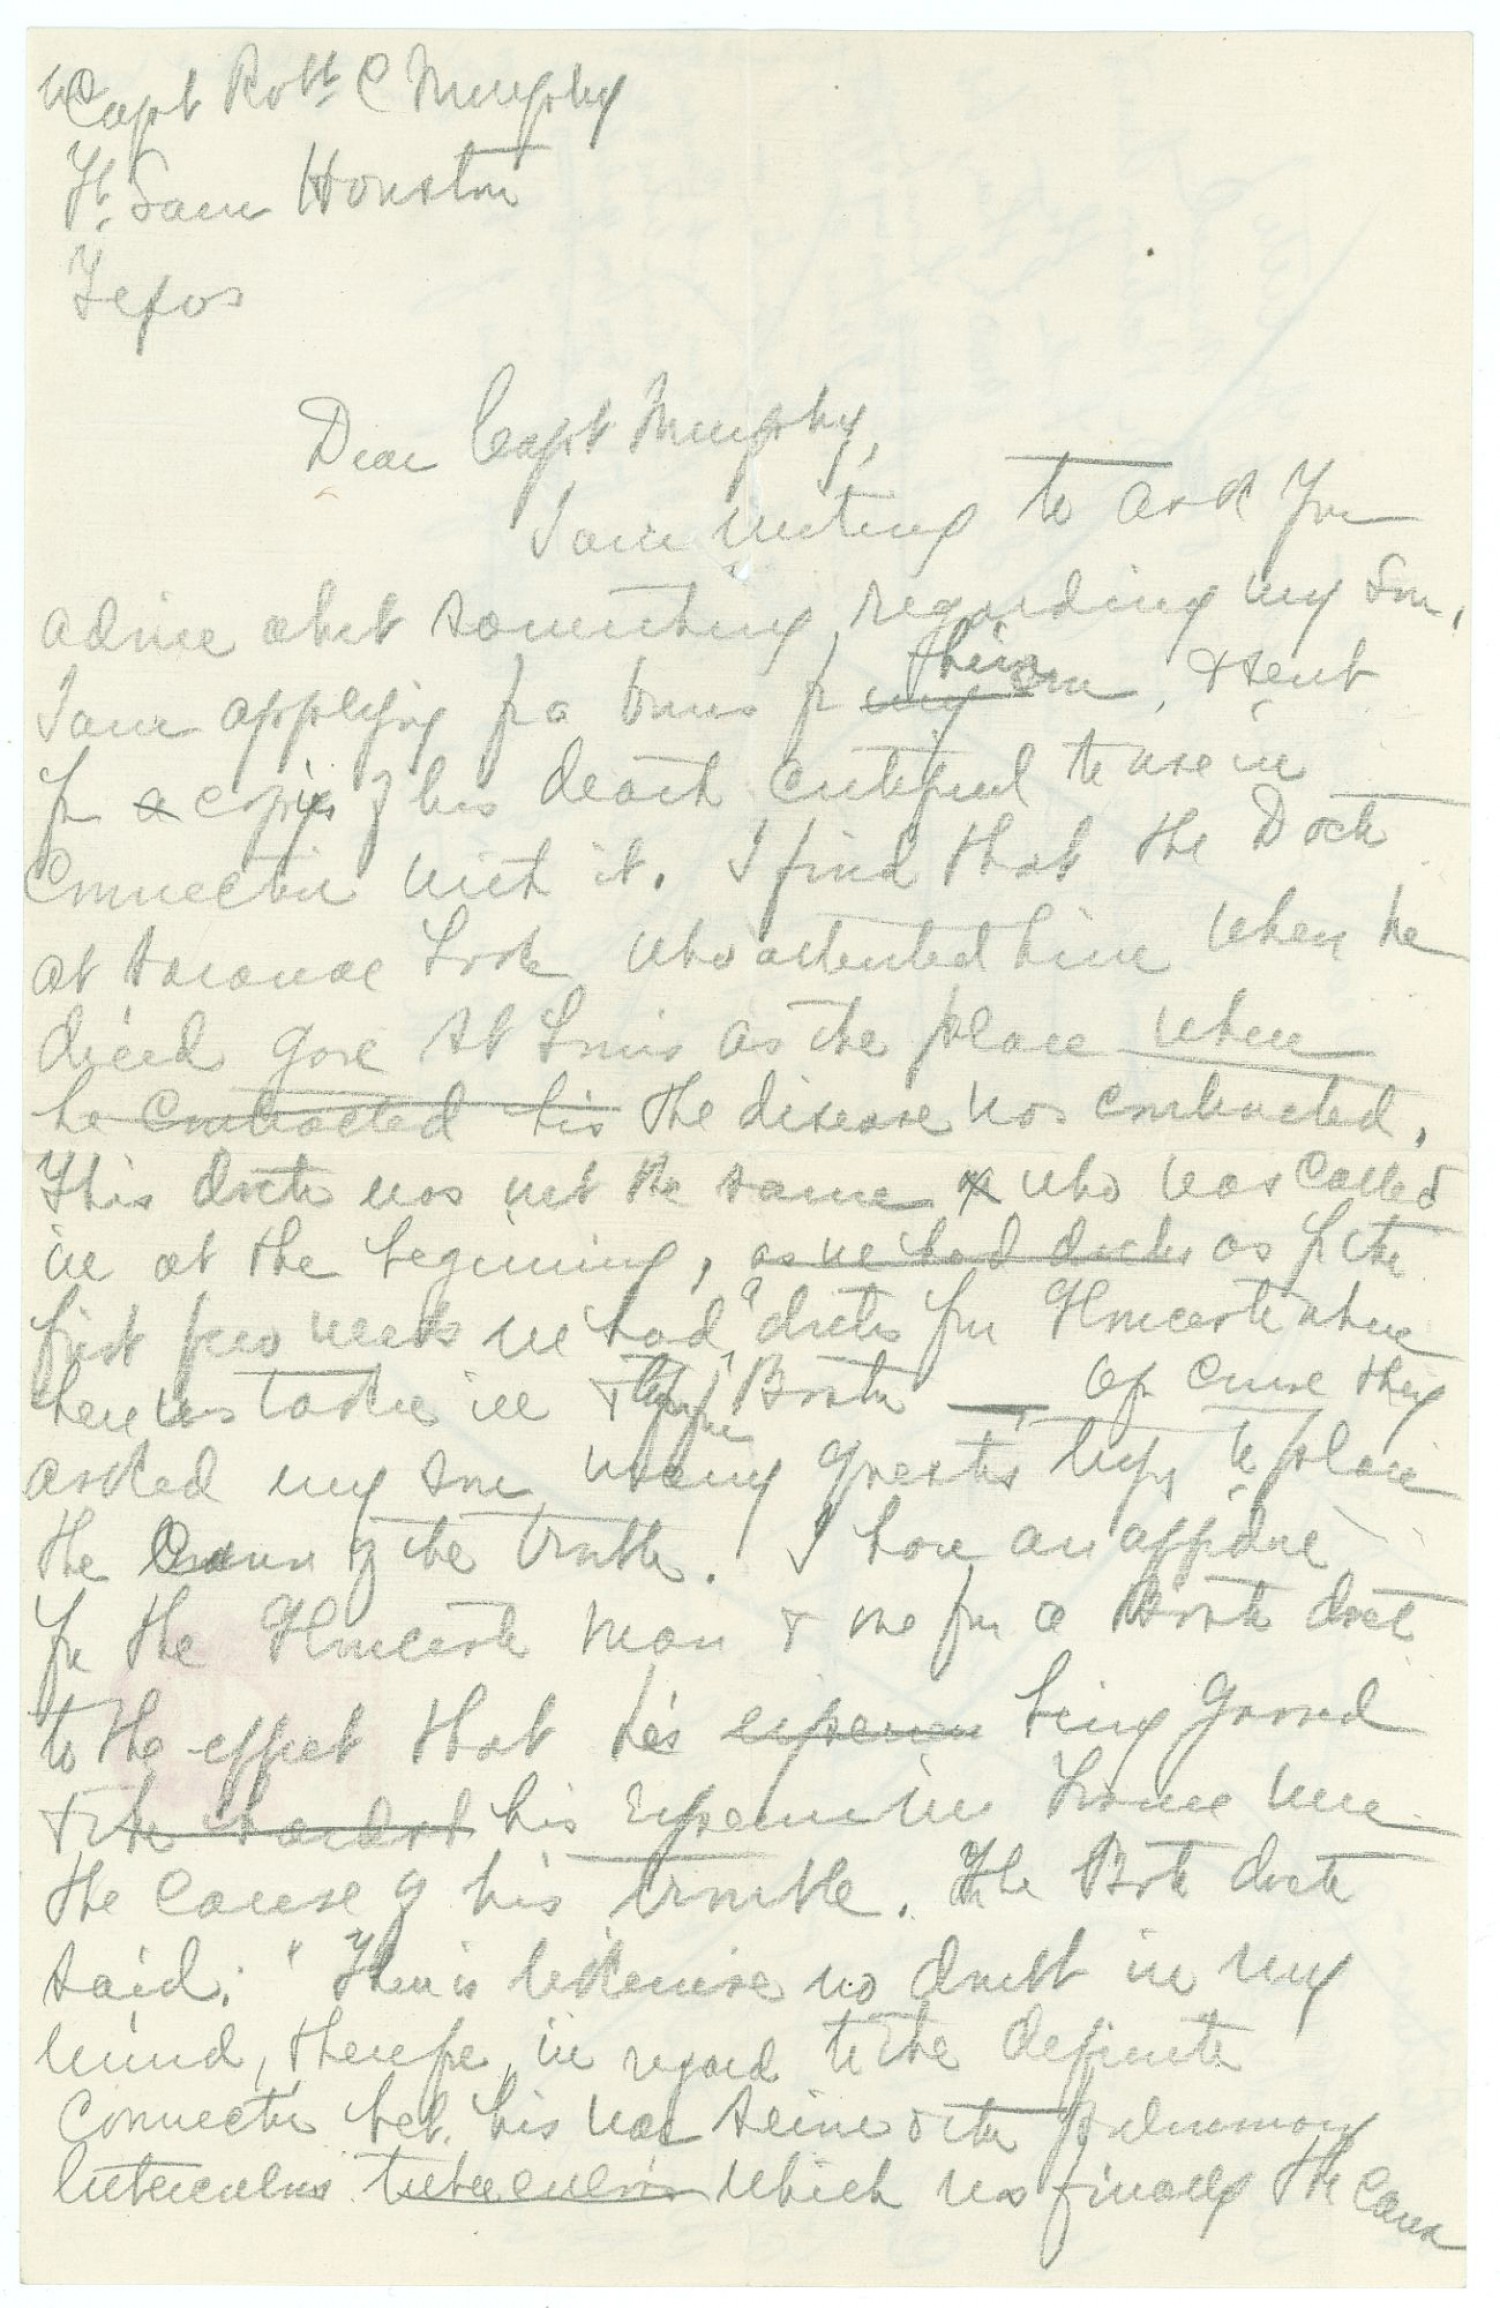 Capt Robt C Murphy
Ft. Sam Houston
Texas
Dear Capt Murphy,
I am writing to ask you
advice abut something regarding my son.
I am applying for a bonus for my son him, & sent
for a copies of his death certificat to use in
connection with it. I find that the Doctor
at Saranac Lake who attented him when he
died gave St Louis as the place where
he contracted his the disease was contracted.
This doctor was not the same who was called
in at the beginning, as we had doctors as for the
first few weeks we had doctors from Gloucester where
he was taken ill & from Boston of course they
asked my son, using greatest to place
the cause of the trouble. I have an affidavit
from the Gloucester man & one from a Boston doct
to the effect that his experience being gassed
& the hardest his experience in France were
the cause of his trouble. The Bost doctor
said: "There is likewise no doubt in my
mind, therefore, in regard to the definite
connection bet. his war service & the pulmonary
tuberculosis tuberculosis which was finally the cause